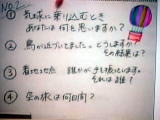 No.2
① 気球に乗り込むとき
あなたは何を思いますか?
② 鳥が近づいてました。どうしますか?
その結果は?
③ 着地地点 誰かが手を振っています。
それは誰?
④ 空の旅は何日間?